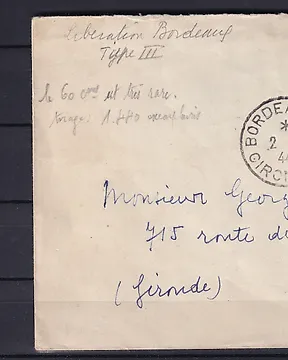 Libération Bordeaux
Type III
le 60 cmes est très rare.
tirage: 1.480 exemplaires
BORDEA
*
2
44
GIRON
Monsieur Georg
715 route de
(Gironde)